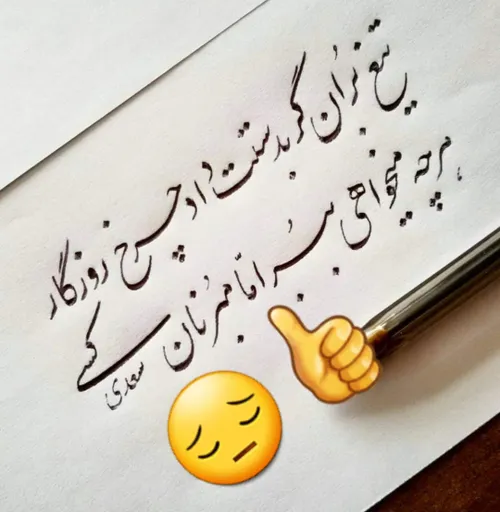 تیغ بُرّان گر بدستت داد چرخ روزگار
هرچه میخواهی ببُر امّا مبُر نان کسے
سعدی